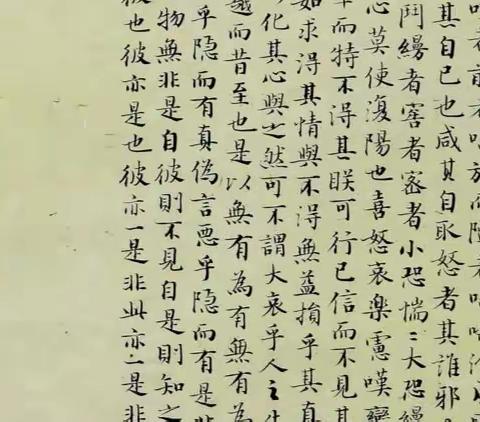 者前者唱於而隨者唱喁
其自已也咸其自取怒者其誰邪
鬥縵者窖者密者小恐惴〻大恐縵
心莫使復陽也喜怒哀樂慮嘆變
而特不得其眹可行已信而不見其
如求得其情與不得無益損乎其真
化其心與之然可不謂大哀乎人之生
越而昔至也是以無有為有無有為
乎隱而有真偽言惡乎隱而有是非
物無非是自彼則不見自是則知之
彼也彼亦是也彼亦一是非此亦一是非